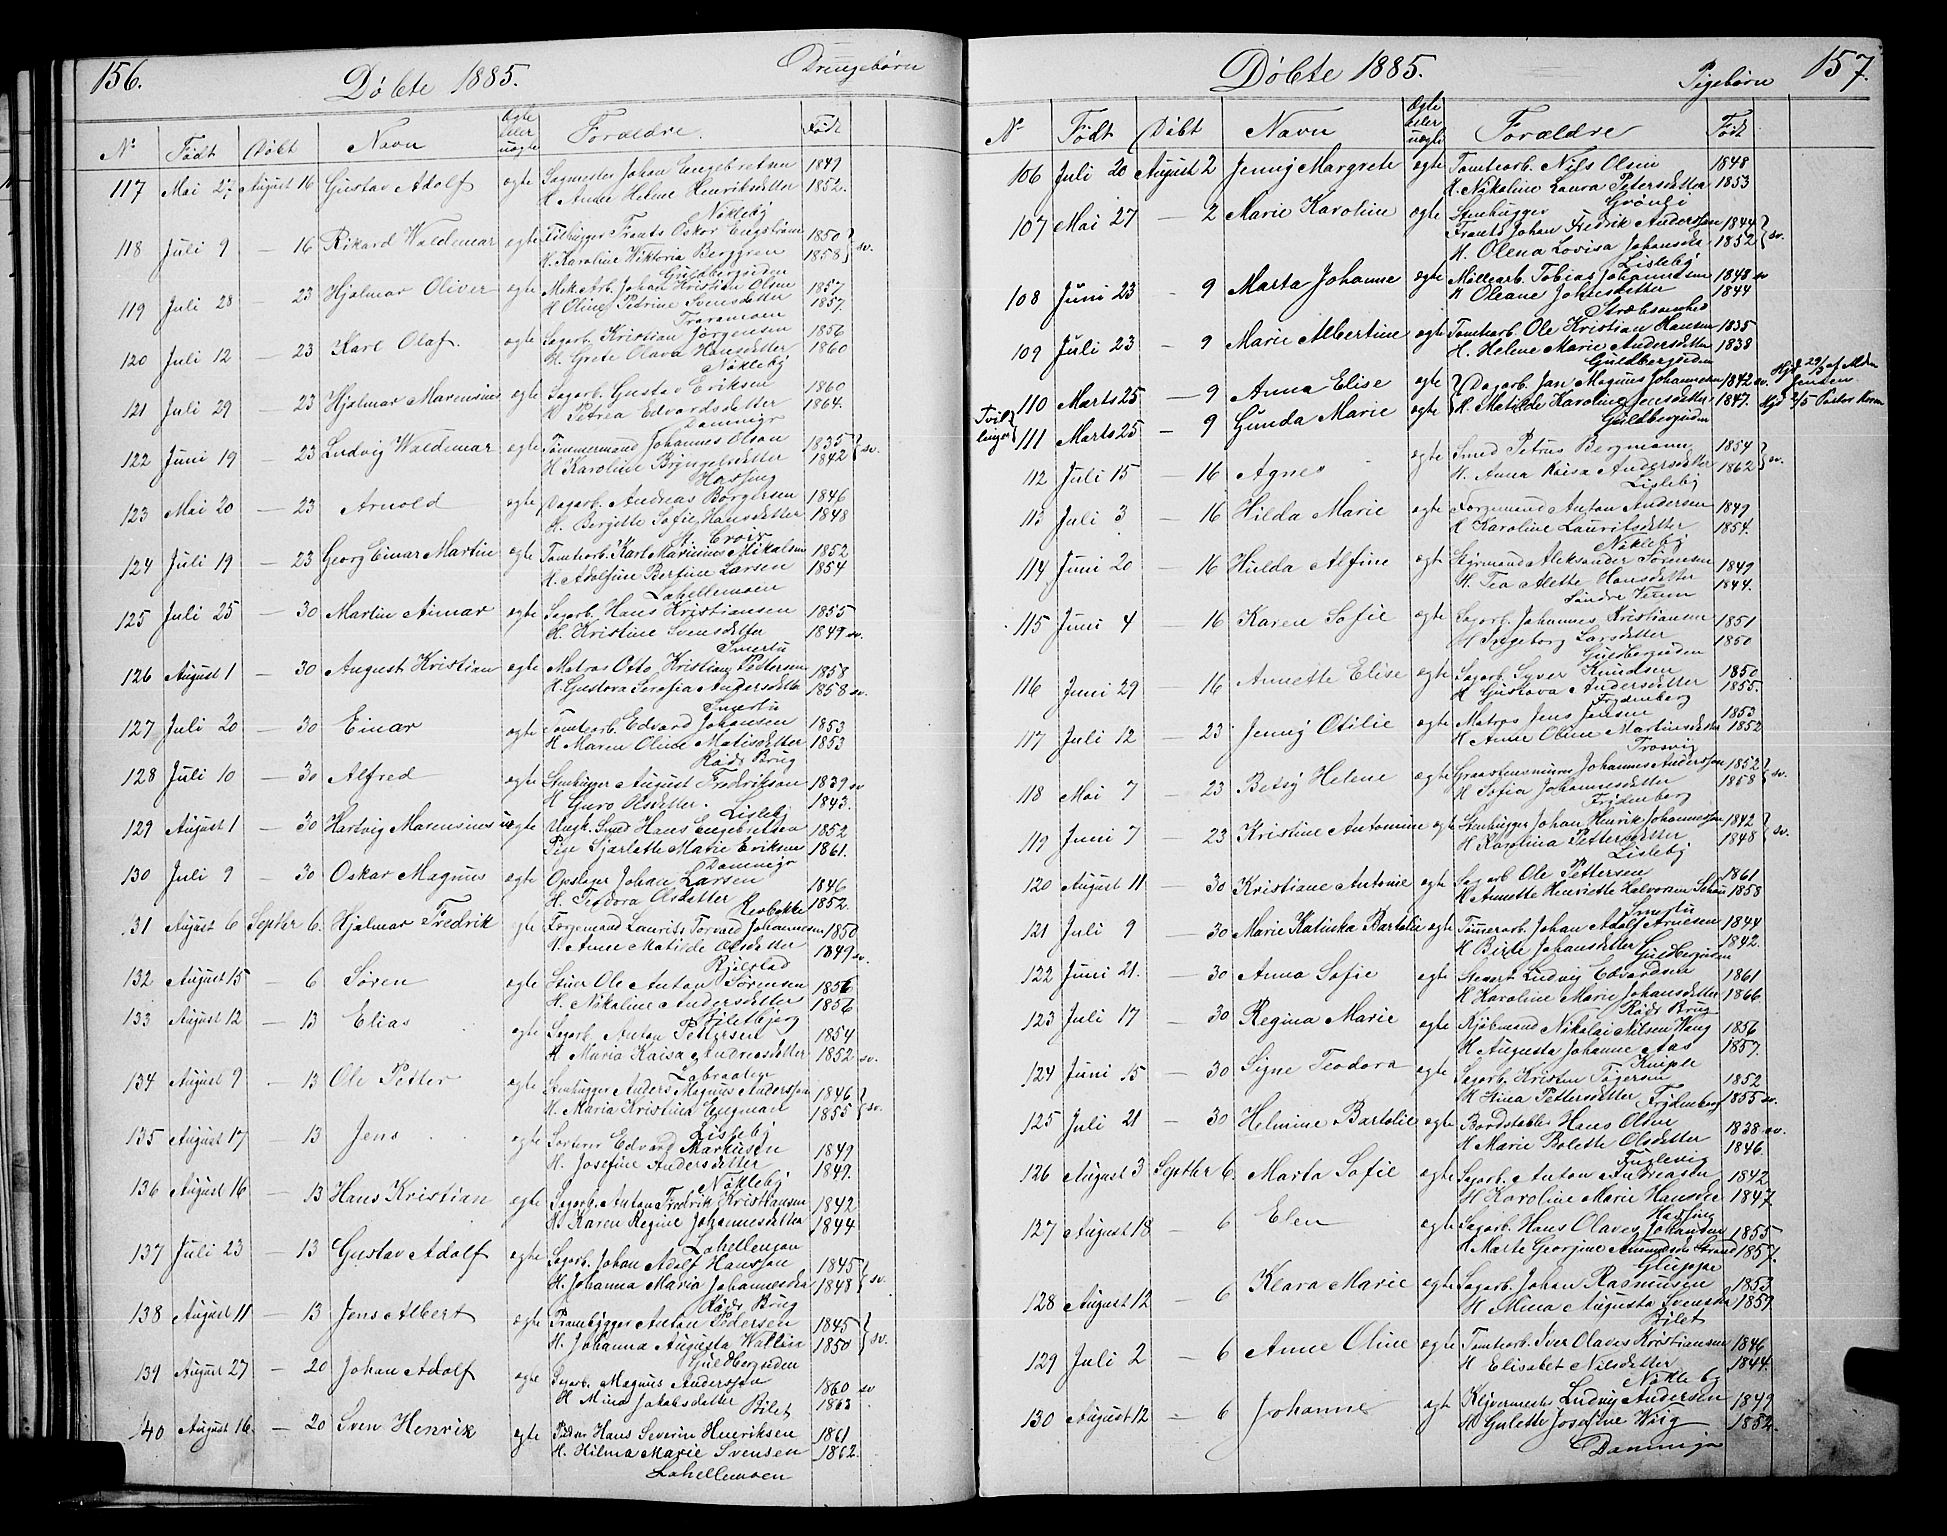 156.
Døbte 1885.
Drengebørn
No Født Døbt Navn Ægte eller uægte Forældre. Født
117 Mai 27 August 16 Gustav Adolf ægte Sagmester Johan Engebretsen 1849
H. Anne Helene Henriksdetter 1852.
Nøkleby
118 Juli 9 — 16 Rikard Waldemar ægte Filhugger Frants Oskar Engstrøm 1850
H. Karoline Viktoria Berggren 1858 } sv.
Guldbergsiden
119 Juli 28 — 23 Hjalmar Oliver ægte Mek. Arb. Johan Kristian Olsen 1857
H. Oline Petrine Svensdetter 1857.
Traramoen
120 Juli 12 — 23 Karl Olaf. ægte Sagarb. Kristian Jørgensen 1856
H. Grete Olava Hansdetter 1860
Nøkleby
121 Juli 29 — 23 Hjalmar Marensius ægte Sagarb. Gustav Eriksen 1860
H. Petrea Edvardsdetter 1864.
Damnigr
122 Juni 19 — 23 Ludvig Waldemar ægte Tømmermand Johannes Olson 1835
H Karoline Bryngelsdetter 1842 } sv.
Hassing
123 Mai 20 — 23 Arnold ægte Dagarb. Andreas Borgersen 1846
H. Bergitte Sofie Hansdetter 1848
St. Croix
124 Juli 19 — 23 Georg Einar Martin ægte Tomtearb. Karl Marinius Mikalsen 1852
H. Adolfine Bertine Larsen 1854
Lahellemoen
125 Juli 25 — 30 Martin Aimar ægte Sagarb. Hans Kristiansen 1855
H. Kristine Svensdetter 1849 sv.
Smertu
126 August 1 — 30 August Kristian ægte Matros Otto Kristian Pettersen 1858
H. Gustava Serafia Andersdetter 1858 sv.
Smertu
127 Juli 20 — 30 Einar ægte Tomtearb. Edvard Johansen 1853
H. Maren Oline Matisdetter 1853
Røds Brug
128 Juli 10 — 30 Alfred ægte Stenhugger August Fredrikson 1839 sv
H Guro Olsdetter. 1843.
Lisleby
129 August 1 — 30 Hartvig Marensius uægte Ungk. Smed Hans Engebretsen 1852
Pige Sjarlotte Matie Eriksen 1861.
Damnigr
130 Juli 9 — 30 Oskar Magnus ægte Opslager Johan Larsen 1846
H. Teodora Olsdetter 1852.
Revbakke
31 August 6 Septbr 6. Hjalmar Fredrik gte Færgemand Laurits Torvald Johannesen 1850
H. Anne Matilde Olsdetter 1849 sv.
Rjølstad
132 August 15 — 6 Søren ægte Stuer Ole Anton Sørensen 1856
H. Nikoline Andersdetter 1856
Biletbjerg
133 August 12 — 13 Elias ægte Sagarb. Anton Pettersen 1854
H Maria Kaisa Andreasdetter 1852. sv.
Labraaten
134 August 9 — 13 Ole Petter ægte Stenhugger Anders Magnus Andersson 1846
H. Maria Kristina Engman 1855 } sv.
Lisleby
135 August 17 13 Jens ægte Sorterer Edvard Markusen 1849
H. Josefine Andersdetter 1849.
Nøkleby
136 August 16 — 13 Hans Kristian ægte Sagarb. Anton Fredrik Kristiansen 1842
H. Karen Regine Johannesdetter 1844
Lahellemoen
137 Juli 23 — 13 Gustav Adolf ægte Sagarb. Johan Adolf Hansson 1845
H. Johanna Maria Johannesda 1848 } sv.
Røds Brug
138 August 11 — 13 Jens Albert ægte Prambygger Anton Pedersen 1845
H. Johanna Augusta Wallin 1850 } sv.
Guldbergsiden
139 August 27 — 20 Johan Adolf ægte Sagarb. Magnus Andersson 1860 sv
H Mina Jakobsdetter 1863
Bilet
140 August 16. — 20 Sven Henrik ægte Hans Severin Henriksen 1861
H. Hilma Marie Svensen 1862.
Lahellemoen
157.
Døbte 1885.
Pigebørn
No Født Døbt Navn Ægte eller uægte Forældre Født
106 Juli 20 August 2 Jenny Margrete ægte Tomtearb. Nils Olsen 1848
H. Nikoline Laura Petersdetter 1853
Grønli
107 Mai 27 — 2 Marie Karoline ægte Stenhugger
Frants Johan Fredrik Andersson 1844
H. Olena Lovisa Johansda 1852 } sv.
Lisleby
108 Juni 23 — 9 Marta Johanne ægte Møllearb. Tobias Johannesen 1848 sv
H Oleane Johnsdetter 1844
Stræbsomhed
109 Juli 23 — 9 Marie Albertine ægte Tomtearb. Ole Kristian Hansen 1835
H. Helene Marie Andersdetter 1838
Guldbergsiden
Tvillinger { 110 Marts 25 — 9 Anna Elise ægte Dagarb. Jan Magnus Johannesen 1842 sv.
111 Marts 25 — 9 Gunda Marie ægte H. Matilde Karoline Jensdetter 1847.
Guldbergsiden
112 Juli 15 — 16 Agnes ægte Smed Petrus Bergmann 1854
H. Anna Kaisa Andersdetter 1862 } sv.
Lisleby
113 Juli 3 — 16 Hilda Marie ægte Formand Anton Andersen 1849
H Karoline Lauritsdetter 1854.
Nøkleby
114 Juni 20 — 16 Hulda Alfine ægte Styrmand Aleksander Sørensen 1849
H. Tea Alette Hansdetter 1844.
Søndre
115 Juni 4 — 16 Karen Sofie ægte Sagarb. Johannes Kristiansen 1851
H Ingeborg Larsdetter 1850
Guldbergsiden
116 Juni 29 — 16 Annette Elise ægte Sagarb. Syver Knudsen 1850
H Gustava Andersdetter 1855.
Frydenberg
117 Juli 12 — 23 Jenny Otilie ægte Matros Jens Jensen 1853
H Anne Oline Martinsdetter 1852
Trosvig
118 Mai 7 — 23 Betsy Helene ægte Graastensmurer Johannes Andersson 1852
H Sofia Johannesdetter 1858 } sv.
Frydenberg
119 Juni 7 23 Kristine Antonine ægte Stenhugger Johan Henrik Johannesson 1842
H Karolina Pettersdetter 1848 } sv.
Lisleby
120 August 11 — 30 Kristiane Antonie ægte Sagarb Ole Pettersen 1861
H Annette Henriette Halvorsen 1858
Smertu
121 Juli 9 — 30 Marie Katinka Bartolie ægte Tømrerarb. Johan Adolf Arnesen 1844
H Birte Johansdetter 1842.
Guldbergsiden
122 Juni 21. — 30 Anna Sofie ægte Ludvig Edvardsen 1861
H Karoline Marie Johansdetter 1866.
Røds Brug
123 Juli 17 — 30 Regina Marie ægte Kjøbmand Nikolai Nilsen Haug 1856
H Augusta Johanne Aas 1857.
Kniple
124 Juni 15 — 30 Signe Teodora ægte Sagarb. Kristen Tøgersen 1852
H Stina Pettersdetter 1855 sv.
Frydenberg
125 Juli 21 — 30 Helmine Bartolie ægte Bordstabler Hans Olsen 1838 sv.
H Marie Bolette Olsdetter 1846.
Fuglevig
126 August 3 Septbr 6. Marta Sofie ægte Sagarb. Anton Andreasen 1842
H Karoline Marie Hansda 1847
Hassing
127 August 18 — 6 Elen ægte Sagarb. Hans Olaves Johansen 1855
H Marte Georgine Amundsen Strand 1857.
Gluppe
128 August 12 — 6 Klara Marie ægte Sagarb. Johan Rasmusen 1853
H Mina Augusta Svensda 1859
Bilet
129 Juli 2 — 6 Anne Oline ægte Tomtearb. Iver Olaves Kristiansen 1846
H Elisabet Nilsdetter 1844.
Nøkleby
130 August 12 — 6 Johanne ægt Klyvermester Ludvig Andersen 1849
H Gulette Josefine Wiig 1852.
Damnigr